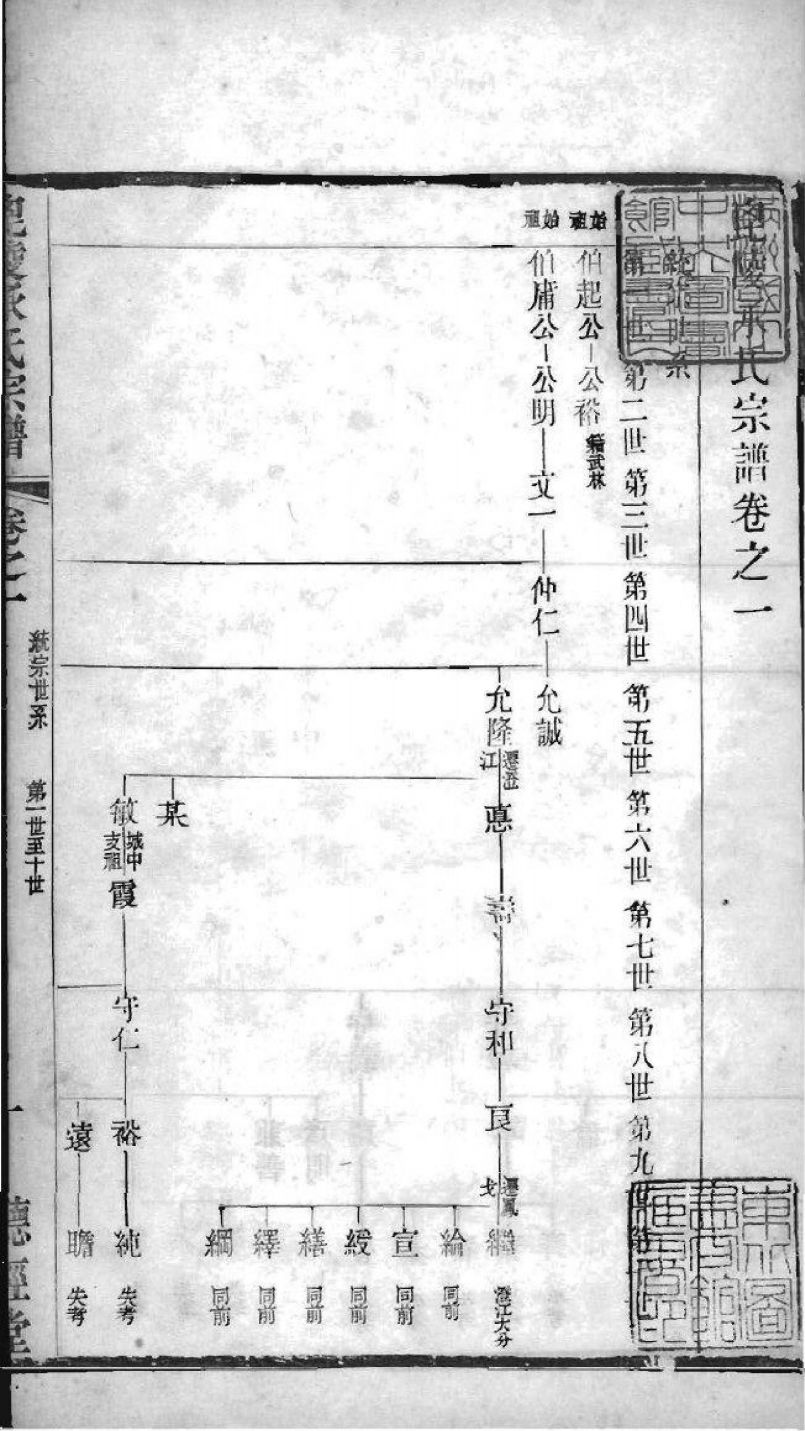 毘陵承氏宗譜卷之一
統宗世系
第一世 第二世 第三世 第四世 第五世 第六世 第七世 第八世 第九世 第
始祖 伯起公 公裕 籍武林
始祖 伯庸公 公明 文一 仲仁 允誠
允隆 遷澄江 惪 壽 守和 良 遷鳳戈 繼 澄江大分
綸 同前
宣 同前
綬 同前
繕 同前
繹 同前
綱 同前
某
敏 城中支祖 霞 守仁 裕 純 失考
遠 瞻 失考
毘陵承氏宗譜 卷之一 統宗世系 第一世至十世 一 德經堂